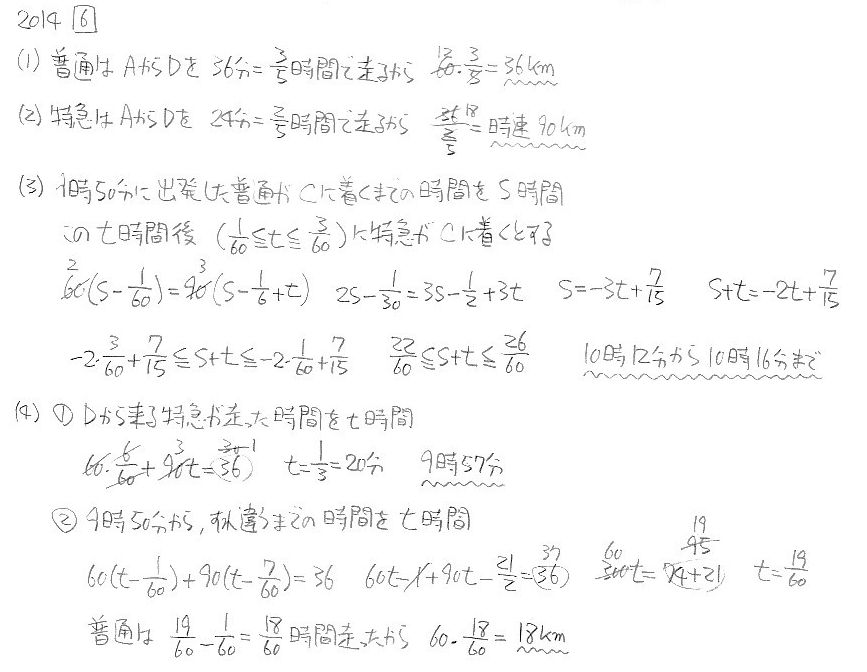 2014 6
(1) 普通は AからDを 36分=3/5時間で走るから 60・3/5=36km
(2) 特急は AからDを 24分=2/5時間で走るから 36/(2/5)=時速90km
(3) 9時50分に出発した普通が Cに着くまでの時間を S時間
この t時間後 (1/60≦t≦3/60)に特急が Cに着くとする
60(S-1/60)=90(S-1/6+t) 2S-1/30=3S-1/2+3t S=-3t+7/15 S+t=-2t+7/15
-2・3/60+7/15≦S+t≦-2・1/60+7/15 22/60≦S+t≦26/60 10時12分から10時16分まで
(4) ① Dから来る特急が走った時間をt時間
60・6/60+90t=36 t=1/3=20分 9時57分
② 9時50分から,すれ違うまでの時間を t時間
60(t-1/60)+90(t-7/60)=36 60t-1+90t-21/2=36 300t=74+21 t=19/60
普通は 19/60-1/60=18/60時間走ったから 60・18/60=18km